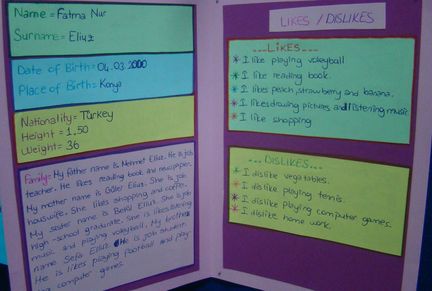 Name = Fatma Nur
Surname = Eliuz
Date of Birth = 04.03.2000
Place of Birth = Konya
Nationality = Türkey
Height = 1.50
Weight = 36
Family = My father name is Mehmet Eliuz. He is job
teacher. He likes reading book and newspaper.
My mother name is Güler Eliuz. She is job
houswife. She likes shopping and coffee.
My sister name is Betül Eliuz. She is job
high-school graduate. She is likes listening
music and playing volleyball. My brother
name Sefa Eliuz. He is job student.
He is likes playing football and play
computer games.
LIKES / DISLIKES
---LIKES---
* I like playing voleyball
* I like reading book.
* I likes peach, strawberry and banana.
* I likes drawing pictures and listening music.
* I like shopping
--- DISLIKES---
* I dislike vegatables.
* I dislike playing tennis.
* I dislike playing computer games.
* I dislike home work.